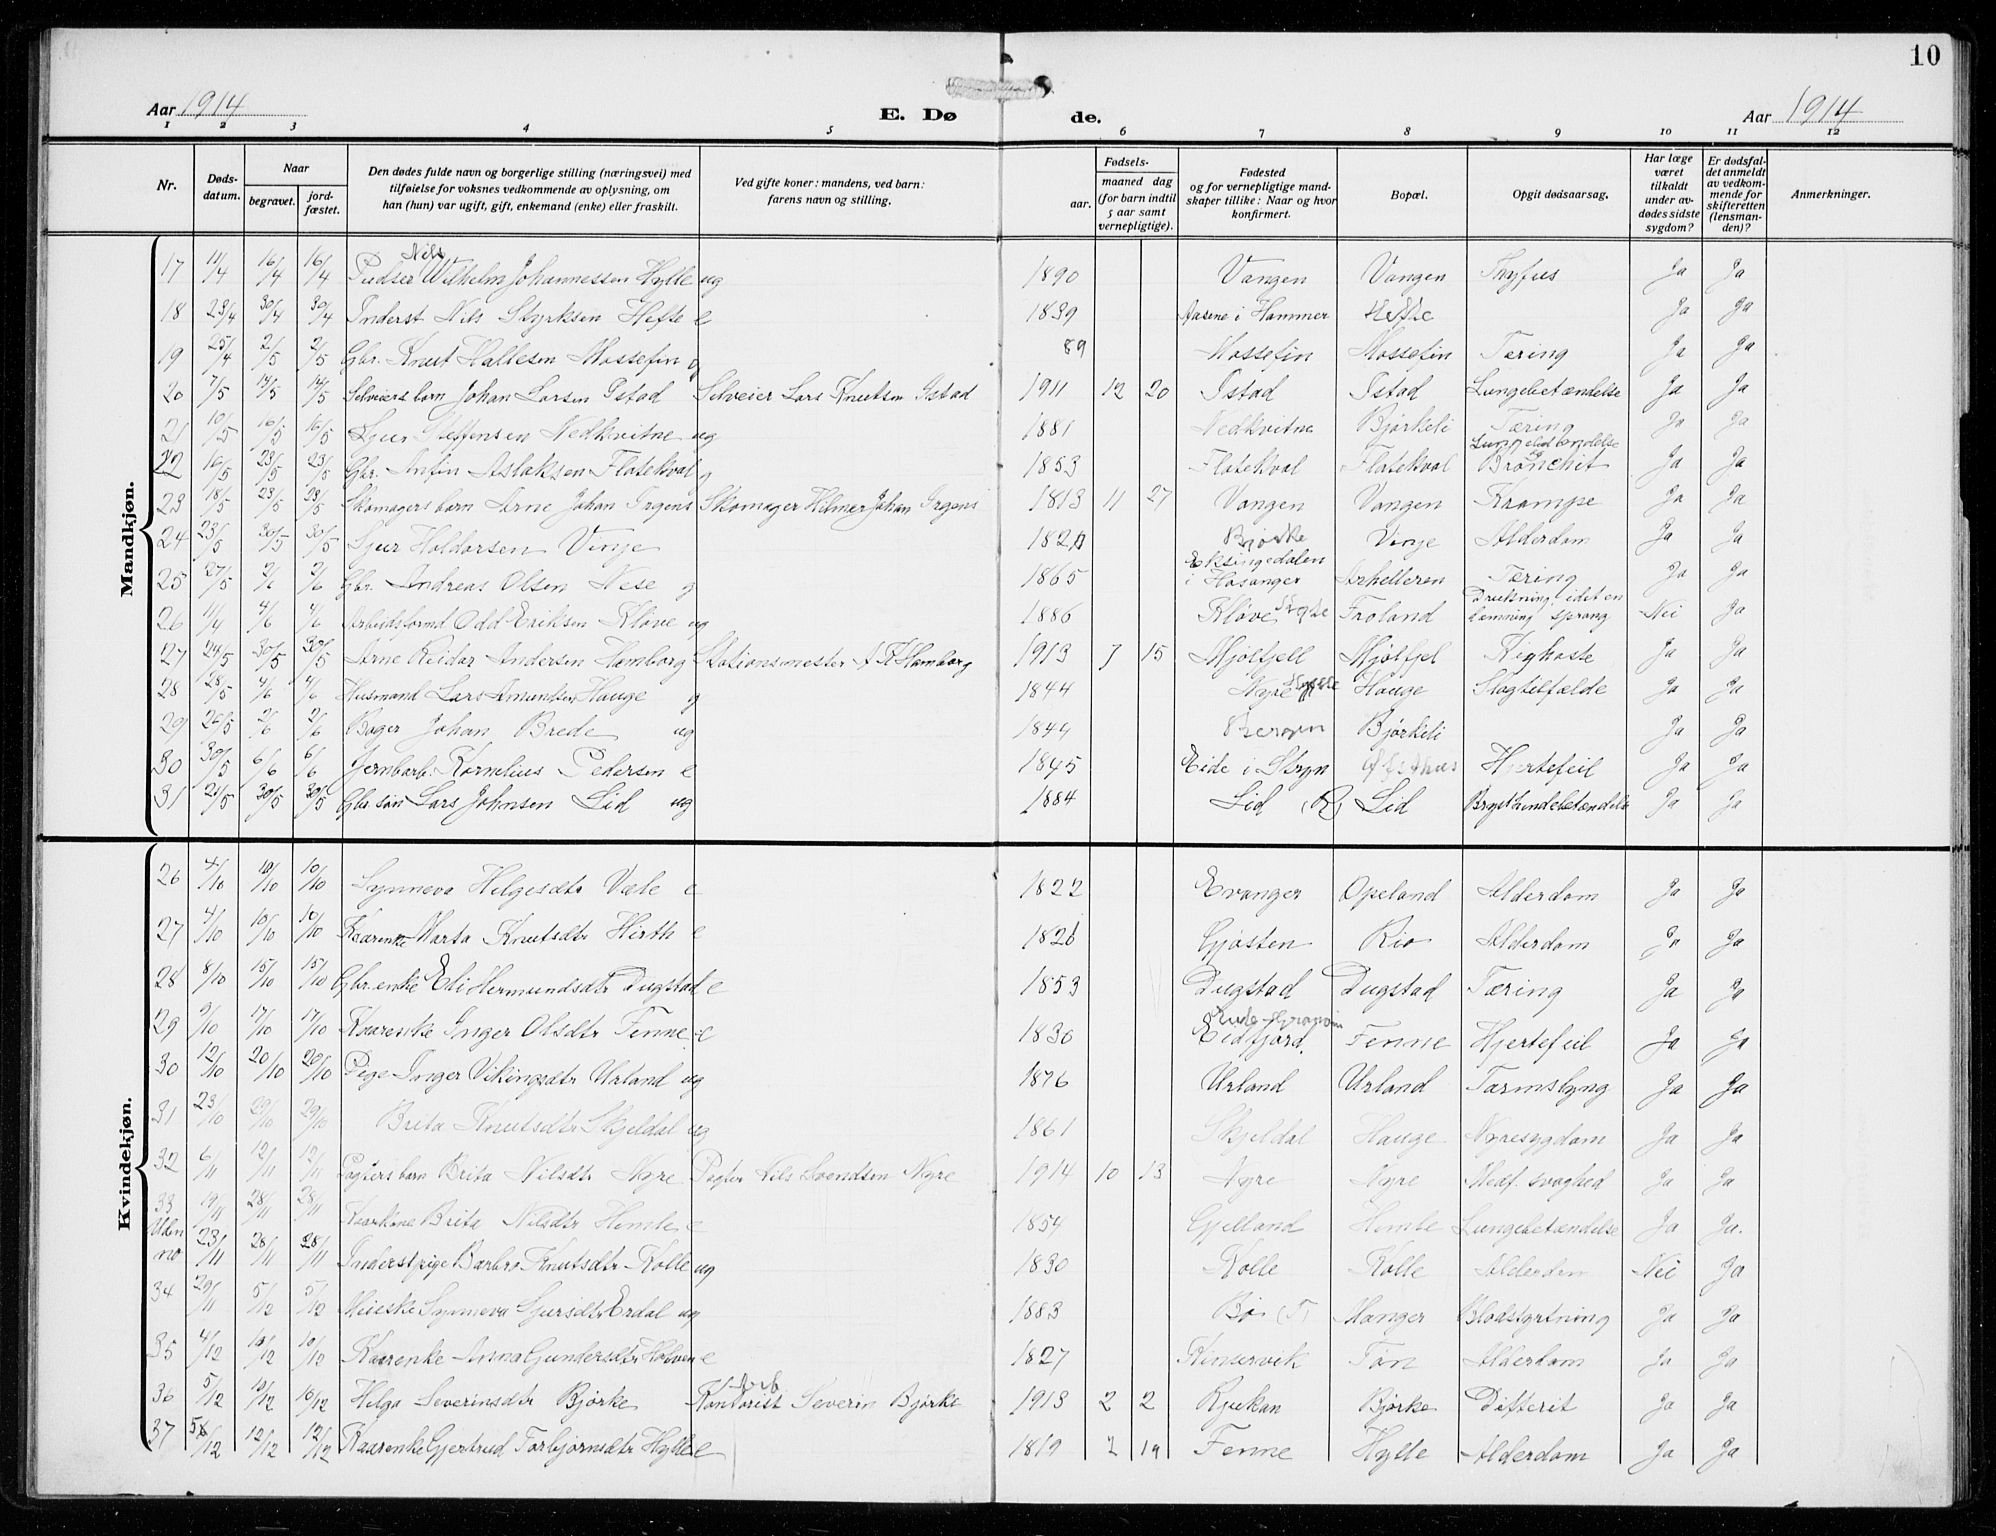 10
Aar 1914
E. Døde.
Aar 1914
1 2 3 4 5 6 7 8 9 10 11 12
Nr.
Døds-datum.
Naar
begravet.
jord-fæstet.
Den dødes fulde navn og borgerlige stilling (næringsvei) med
tilføielse for voksnes vedkommende av oplysning, om
han (hun) var ugift, gift, enkemand (enke) eller fraskilt.
Ved gifte koner: mandens, ved barn:
farens navn og stilling.
Fødsels-
aar.
maaned dag
(for barn indtil
5 aar samt
vernepligtige).
Fødested
og for vernepligtige mand-
skaper tillike: Naar og hvor
konfirmert.
Bopæl.
Opgit dødsaarsag.
Har læge
været
tilkaldt
under av-
dødes sidste
sygdom?
Er dødsfal-
det anmeldt
av vedkom-
mende for
skifteretten
(lensman-
den)?
Anmerkninger.
Mandkjøn.
17 11/4 16/4 16/4 Pudser Nils Wilhelm Johannessen Hylle ug 1890 Vangen Vangen Thyfus Ja Ja
18 23/4 30/4 30/4 Inderst Nils Styrksen Hefte e 1839 Aasene i Hammer Hefte Ja Ja
19 25/4 2/5 2/5 Gbr. Knut Hallesen Mossefin g 89 Mossefin Mossefin Tæring Ja Ja
20 7/5 14/5 14/5 Selveiersbarn Johan Larsen Istad Selveier Lars Knutsen Istad 1911 12 20 Istad Istad Lungebetændelse Ja Ja
21 10/5 16/5 16/5 Sjur Steffensen Nedkvitne ug 1881 Nedkvitne Bjørkeli Tæring Ja Ja
22 16/5 23/5 23/5 Gbr. Anfin Aslaksen Flatekval g 1853 Flatekval Flatekval Lungebetændelse og Bronchit Ja Ja
23 18/5 23/5 23/5 Skomagersbarn Arne Johan Irgens Skomager Helmer Johan Irgens 1813 11 27 Vangen Vangen Krampe Ja Ja
24 23/5 30/5 30/5 Sjur Holdorsen Vinje Bjørke Vinje Alderdom Ja Ja
25 27/5 2/6 2/6 Gbr. Andreas Olsen Nese g 1865 Eksingedalen i Hosanger Arhelleren Tæring Ja Ja
26 11/4 4/6 4/6 Arbeidsformd Odd Eriksen Kløve ug 1886 Kløve Froland Drukning idet en dæmning sprang Nei Ja
27 24/5 30/5 30/5 Arne Reidar Andersen Hamborg Stationsmester A R Hamborg 1913 7 15 Mjølfjell Mjølfjel Kighoste Ja Ja
28 28/5 4/6 4/6 Husmand Lars Amundsen Hauge g 1844 Nyre Hauge Slagtilfælde Ja Ja
29 26/5 2/6 2/6 Bager Johan Brede ug 1844 Bergen Bjørkeli Ja Ja
30 30/5 6/6 6/6 Jernbarb. Kornelius Pedersen e 1845 Eide i Stryn Hjertefeil Ja Ja
31 21/5 30/5 30/5 Gbr.søn Lars Johnsen Lid ug 1884 Lid (R) Lid Brysthindebetændelse Ja Ja
Kvindekjøn.
26 4/10 10/10 10/10 Synneva Helgesdtr Væle e 1822 Evanger Opeland Alderdom Ja Ja
27 4/10 10/10 10/10 Kaarenke Marta Knutsdtr Hirth e 1826 Gjøsten Rio Alderdom Ja Ja
28 8/10 15/10 15/10 Gbr.enke Eli Hermundsdtr Dugstad e 1853 Dugstad Dugstad Tæring Ja Ja
29 9/10 17/10 17/10 Kaarenke Inger Olsdtr Fenne e 1830 Eidfjord. Fenne Hjertefeil Ja Ja
30 12/10 20/10 20/10 Pige Inger Vikingsdtr Urland ug 1876 Urland Urland Tarmslyng Ja Ja
31 23/10 29/10 29/10 Brita Knutsdtr Skjeldal ug 1861 Skjeldal Hauge Nyresygdom Ja Ja
32 6/11 12/11 12/11 Pagtersbarn Brita Nilsdtr Nyre Pagter Nils Svendsen Nyre 1914 10 13 Nyre Nyre Medf. svaghed Ja Ja
33 19/11 28/11 28/11 Kaarkone Brita Nilsdtr Hemle e 1854 Gjelland Hemle Lungebetændelse Ja Ja.
Uden no 23/11 28/11 28/11 Inderstpige Barbro Knutsdtr Kolle ug 1830 Kolle Kolle Alderdom Nei Ja
34 29/11 5/12 5/12 Meieske Synneva Sjursdtr Erdal ug 1883 Bø (T) Manger Blodstyrtning Ja Ja
35 4/12 10/12 10/12 Kaarenke Anna Gundersdtr Holven e 1827 Kinservik Tøn Alderdom Ja Ja
36 5/12 10/12 10/12 Helga Severinsdtr Bjørke Kontorist Severin Bjørke 1913 2 2 Rjukan Bjørke Difterit Ja Ja
37 5/12 12/12 12/12 Kaarenke Gjertrud Torbjørnsdtr Hylle e 1819 2 19 Fenne Hylle Alderdom Ja Ja